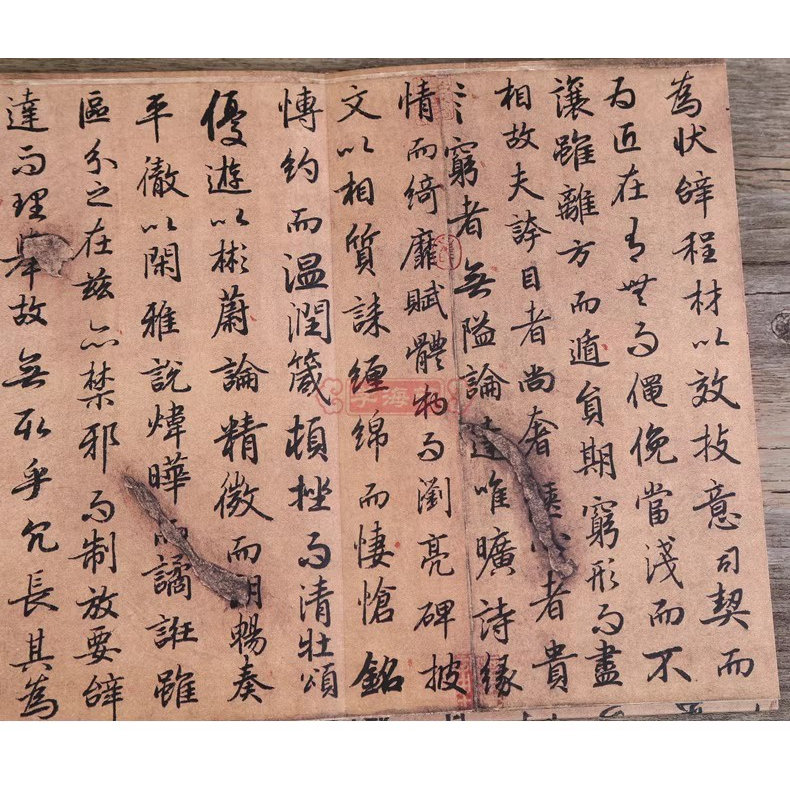 為状辝程材以效技意司契而
為匠在有無而僶俛當淺而不
讓雖離方而遁貟期窮形而盡
相故夫誇目者尚奢愜心者貴
〻窮者無隘論達唯曠詩緣
情而綺靡賦體物而瀏亮碑披
文以相質誄纏綿而悽愴銘
博約而温潤箴頓挫而清壮頌
優遊以彬蔚論精微而朗暢奏
平徹以閑雅說煒曄而譎誑雖
區分之在兹亦禁邪而制放要辝
達而理舉故無取乎冗長其為